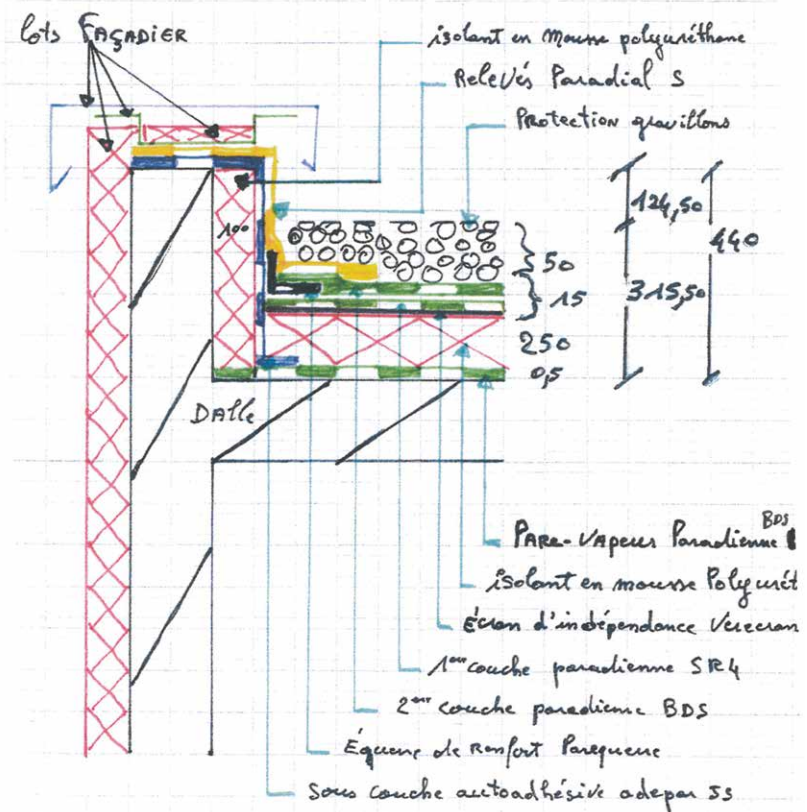 lots FAÇADIER
isolant en Mousse polyuréthane
Relevés Paradial S
Protection gravillons
124,50
440
100
50
15
315,50
250
0,5
DAlle
PARe-VApeur Paradienne BDS
isolant en mousse Polyurét
Écran d'indépendance Verecran
1ère couche paradienne SR4
2ème couche paradienne BDS
Équerre de Renfort Parequerre
Sous couche autoadhésive adepar JS